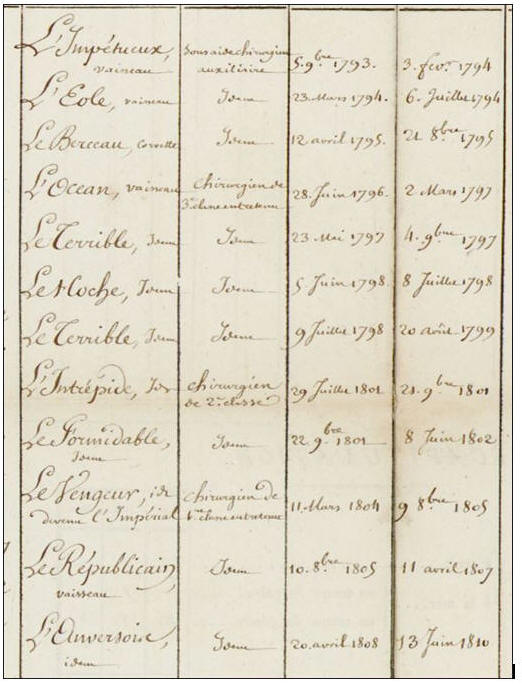 L'Impétueux, Sous aide chirurgien 5. 9bre 1793. 3. fevr. 1794
vaisseau auxiliaire
L'Eole, vaisseau Idem 23. Mars 1794. 6. Juillet 1794
Le Berceau, corvette Idem 12 avril 1795. 21 8bre 1795
L'Ocean, vaisseau chirurgien de 28. Juin 1796. 2 Mars 1797
3e classe entretenu
Le Terrible, Idem Idem 23 Mai 1797 4. 9bre 1797
Le Hoche, Idem Idem 5 Juin 1798 8 Juillet 1798
Le Terrible, Idem Idem 9 Juillet 1798 20 août 1799
L'Intrépide, Id chirurgien 29 Juillet 1801 21. 9bre 1801
de 2e classe
Le Formidable, Idem 22 9bre 1801 8 Juin 1802
Idem
Le Vengeur, id chirurgien de 11. Mars 1804 9 8bre 1805
devenu l'Impérial 1re classe entretenu
Le Républicain, Idem 10. 8bre 1805 11 avril 1807
vaisseau
L'Anversoise, Idem 20. avril 1808 13 Juin 1810
idem